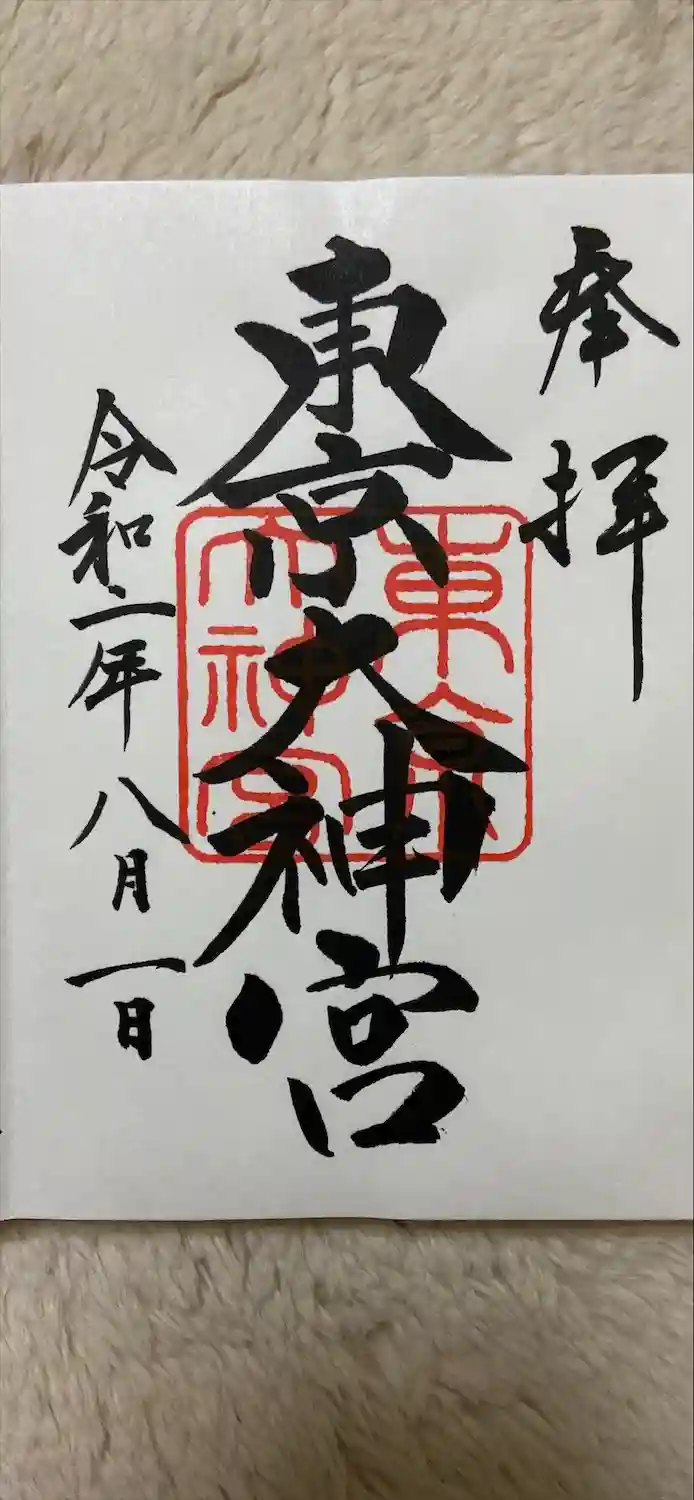 奉拝
東京大神宮
東京
大神宮
令和二年八月一日